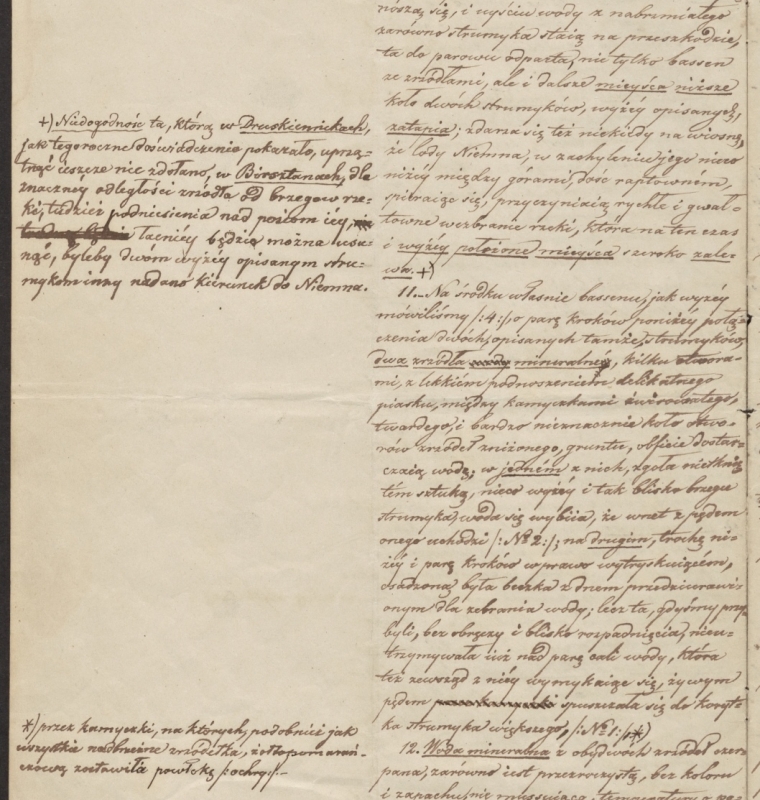 +) Niedogodność ta, którą w Druskienikach,
jak tegoroczne doświadczenie pokazało, uprzą-
tnąć ieszcze nie zdołano, w Birsztanach, dla
znaczney odległości zrzódła od brzegow rze-
ki, tudzież podniesienia nad poziom iéy,
łacniéy będzie można usu-
nąć, byleby dwom wyżéy opisanym stru-
mykom inny nadano kierunek do Niemna.
*) przez kamyczki, na których, podobnież jak
wszystkie nadbrzeżne zrzódełka, żółto pomarań-
czową zostawiła powłokę
noszą się, i uyściu wody z nabrzmiałego
zarówno strumyka staią na przeszkodzie,
ta do parowu odparta, nie tylko bassen
ze zrzódłami, ale i dalsze mieysca niższe
koło dwóch strumyków, wyżéy opisanych,
zatapia; zdarza się też niekiedy na wiosnę,
że lody Niemna, w zachyleniu jego nieco
niżéy między górami, dość raptowném,
spieraiąc się, przyczyniaią rychłe i gwał-
towne wezbranie rzeki, która na ten czas
i wyżéy położone mieysca szeroko zale-
wa. +)
11. Na środku własnie bassenu, jak wyżéy
mówiliśmy /:4:/, o parę kroków poniżéy połą-
czenia dwóch, opisanych tamże, strumyków,
dwa zrzódła mineralne, kilku otwora-
mi, z lekkiém podnoszeniem delikatnego
piasku, między kamyczkami żwirowatego,
twardego, i bardzo nieznacznie koło otwo-
rów zrzódeł zniżonego, gruntu, obficie dostar-
czaią wodę; w jedném z nich, zgoła nietknię
tém sztuką, nieco wyżéy i tak blisko brzegu
strumyka, woda się wybiia, że wnet z pędem
onego uchodzi /:Nº 2:/; na drugim, trochę ni-
żéy i parę kroków w prawo wytryskuiącém,
osadzoną była beczka z dnem przedziurawi-
onym dla zebrania wody; lecz ta, gdyśmy przy
byli, bez obręczy i blisko rozpadnięcia, nieu-
trzymywała iuż nad parę cali wody, która
też zewsząd z niéy wymykaiąc się, żywym
pędem spuszczała się do koryt-
ka strumyka większego, /:Nº 1:/ *)
12. Woda mineralna z obydwóch zrzódeł czer-
pana, zarówno iest przezroczystą, bez koloru
i zapachu, nie mussuiąca, temperatury